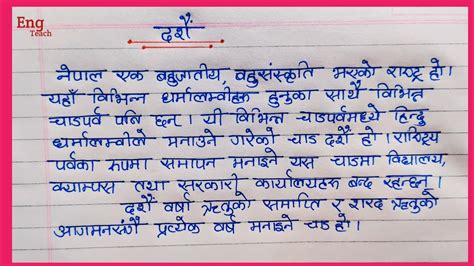 Eng
Teach
दशैं
नेपाल एक बहुजातीय, बहुसंस्कृति भएको राष्ट्र हो।
यहाँ विभिन्न धर्मालम्वीहरु हुनुका साथै विभिन्न
चाडपर्व पनि छन्। यी विभिन्न चाडपर्वमध्ये हिन्दु
धर्मालम्वीले मनाउने गरेको चाड दशैं हो। राष्ट्रिय
पर्वका रुपमा समापन मनाइने यस चाडमा विद्यालय,
क्याम्पस तथा सरकारी कार्यालयहरु बन्द रहन्छन्।
दशैं वर्षा ऋतुको समाप्ति र शरद ऋतुको
आगमनसँगै प्रत्येक वर्ष मनाइने चाड हो।